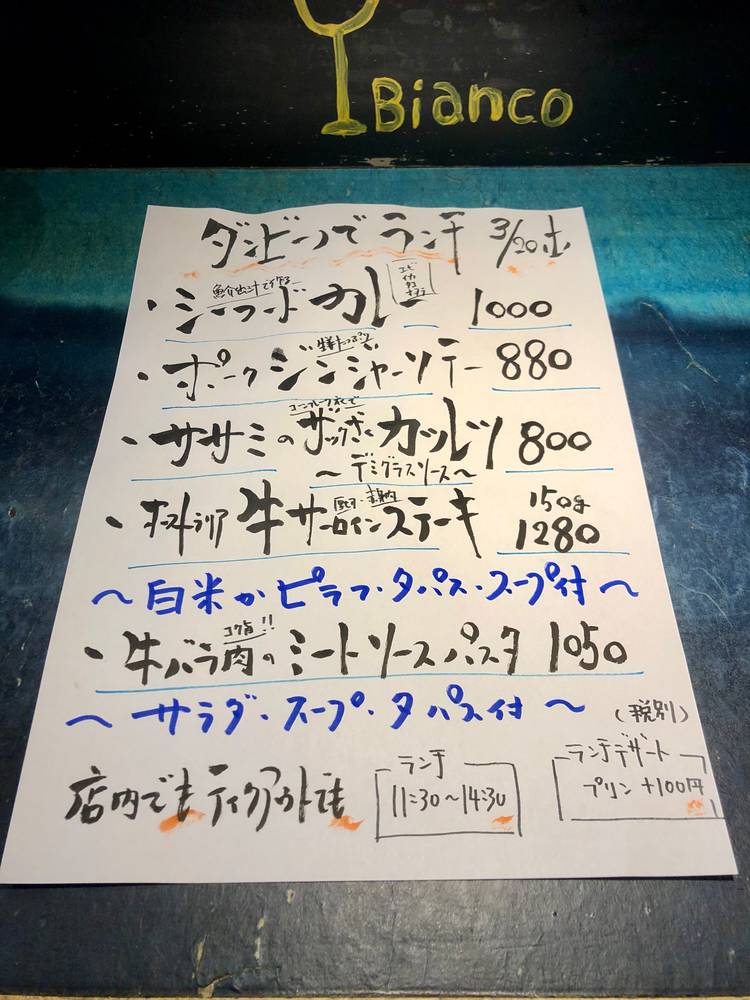 Bianco
ダンビーノでランチ 3/20土
魚介出汁で作る
・シーフードカレー 1000
エビ
イカ
タコ
ホタテ
生姜たっぷり
・ポークジンジャーソテー 880
コーンフレーク衣で
・ササミのザックザクカツレツ 800
〜デミグラスソース〜
厚切り・赤身肉
150g
・オーストラリア牛サーロインステーキ 1280
〜白米かピラフ・タパス・スープ付〜
コク旨!!
・牛バラ肉のミートソースパスタ 1050
〜サラダ・スープ・タパス付〜
(税別)
店内でもテイクアウトでも
ランチ
11:30〜14:30
ランチデザート
プリン +100円